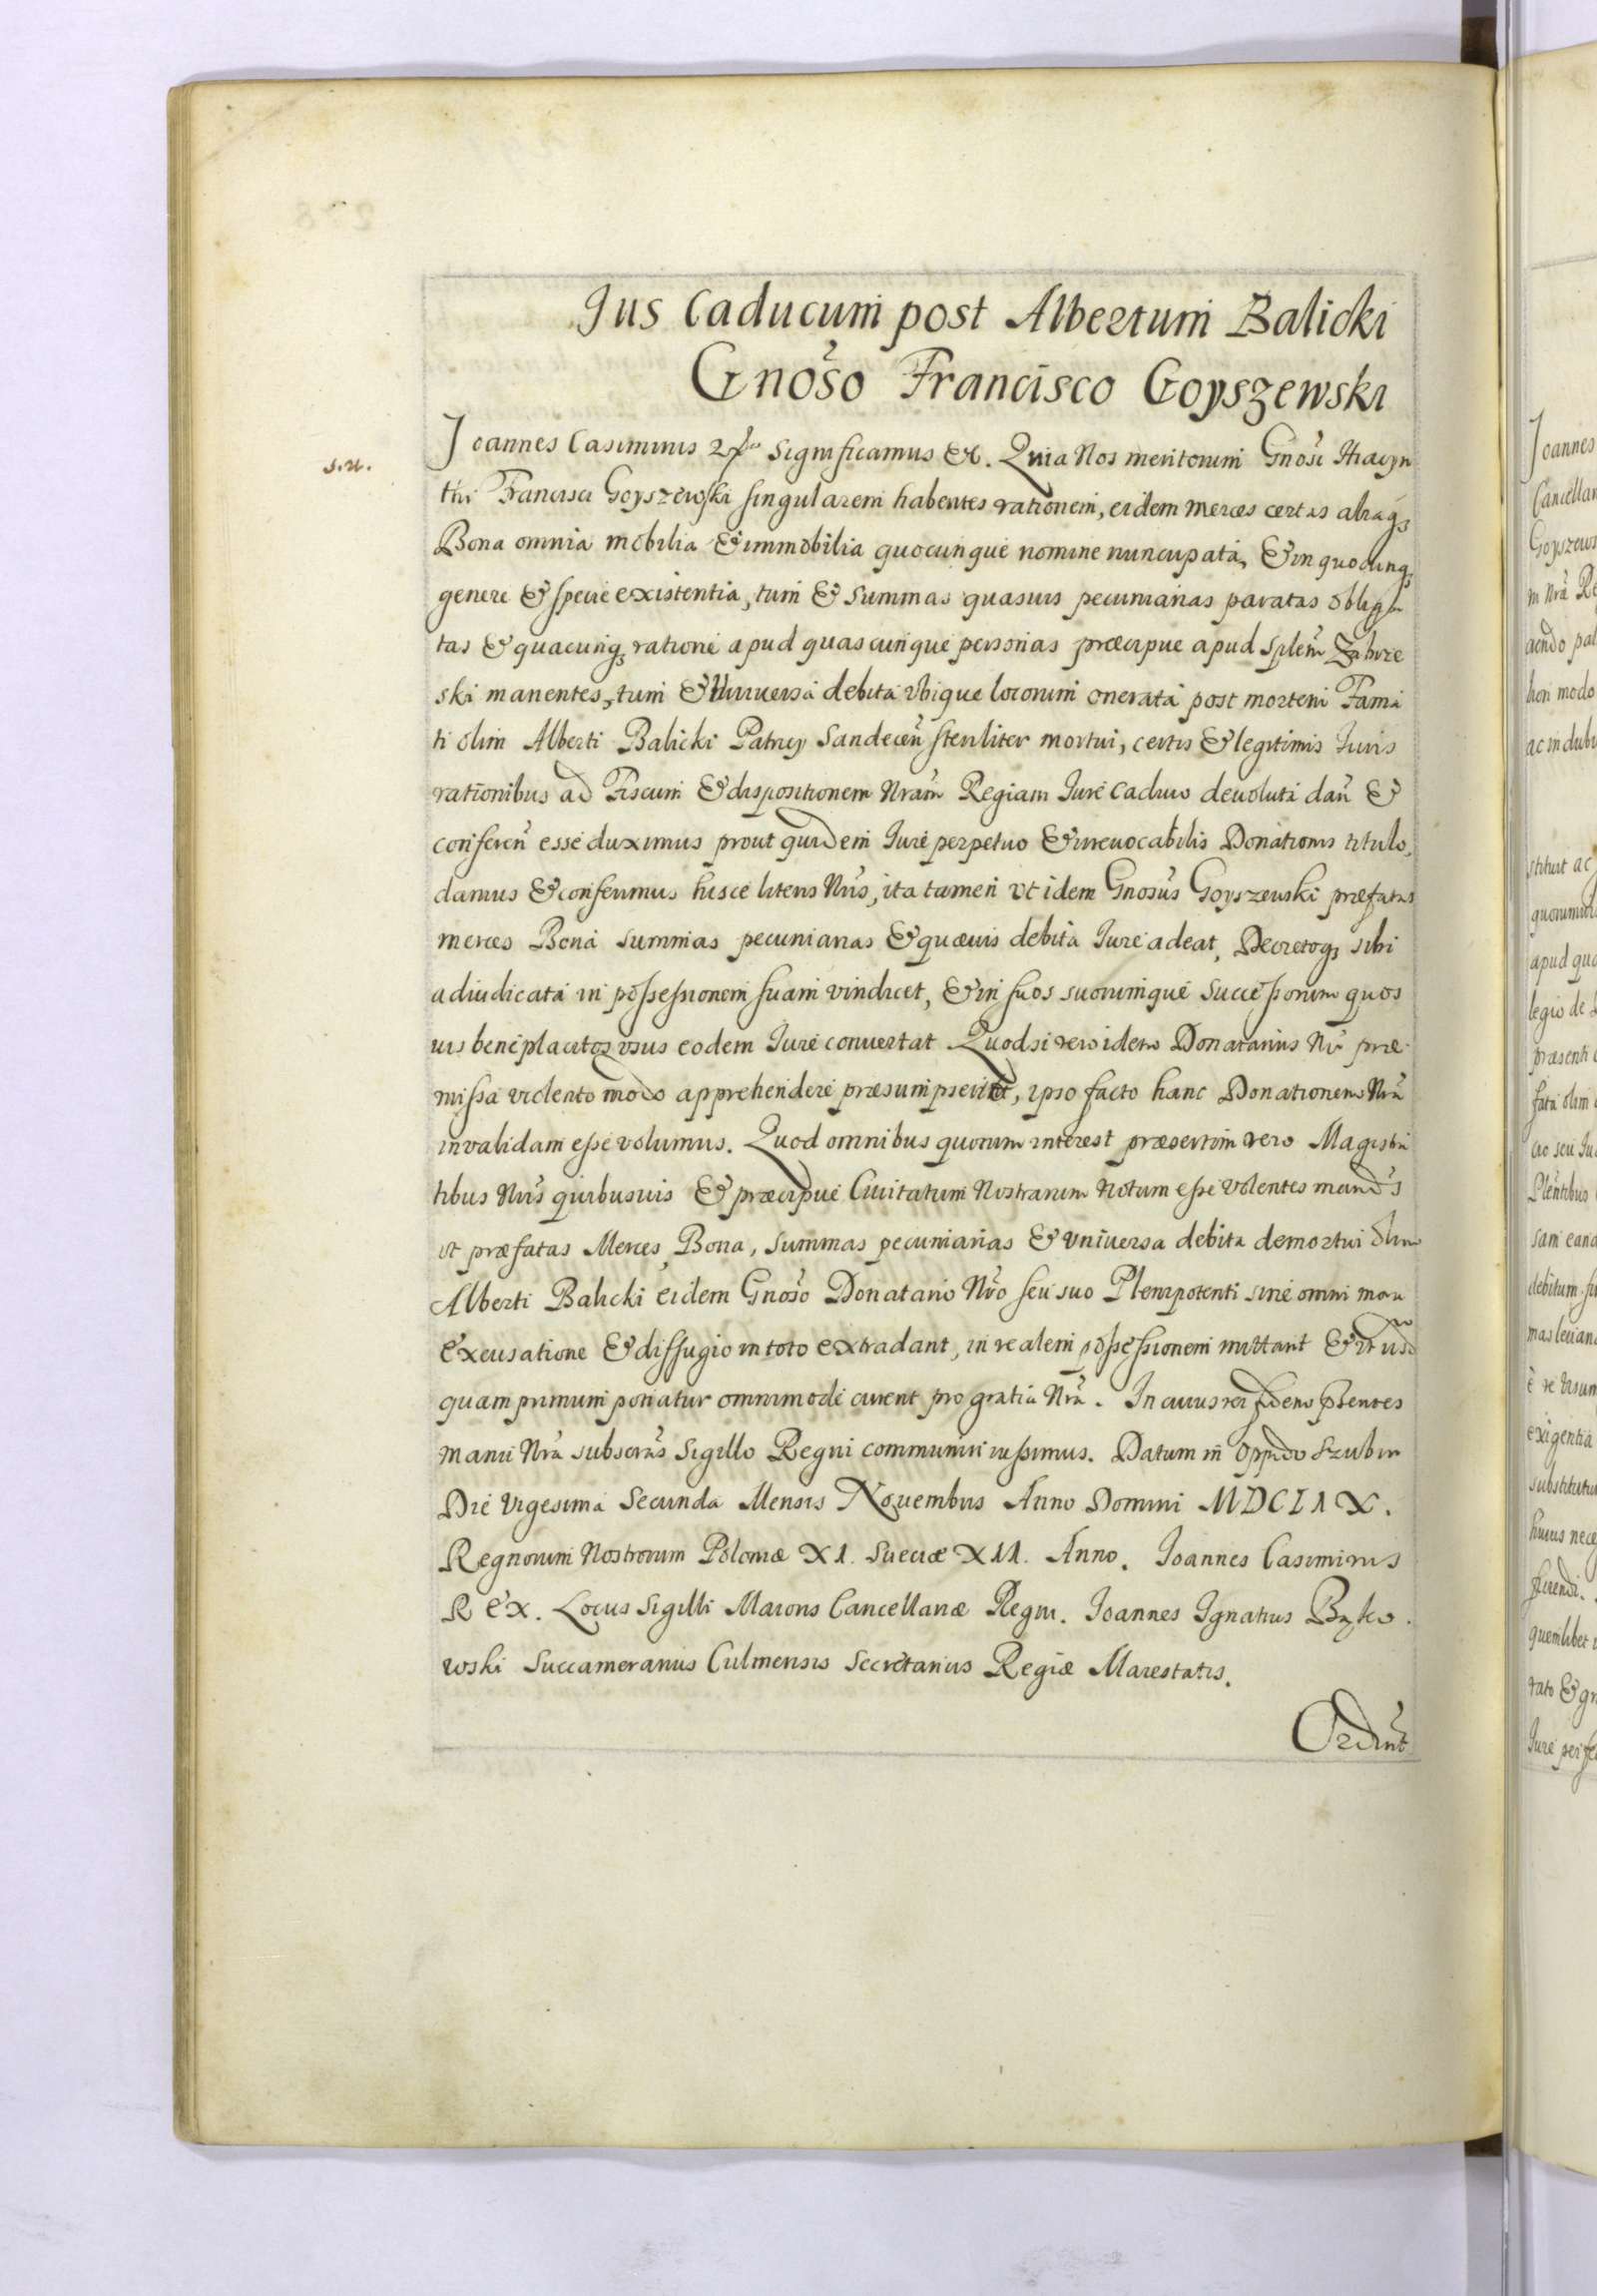 Jus Caducum post Albertum Balicki
Gnoso Francisco Goyszewski
s. n.
Joannes Casimirus Significamus &c. Quia Nos meritorum Gnosi Hiacyn
thi Francisci Goyszewski singularem habentes rationem, eidem merces certas aliaq;
Bona omnia mobilia & immobilia quocunque nomine nuncupata, & in quocunq;
genere & specie existentia, tum & summas quasuis pecuniarias paratas obliga
tas & quacunq; ratione apud quascunque personas præcipue apud Splem
ski manentes, tum & Vniuersa debita vbique locorum onerata post mortem Fama
ti olim Alberti Balicki Patrcy Sandecen steriliter mortui, certis & legitimis Iuris
rationibus ad Fiscum & dispositionem Nram Regiam Iure Caduco deuoluta dan &
conferen esse duximus prout quidem Iure perpetuo & irreuocabilis Donationis titulo,
damus & conferimus hisce literis Nris, ita tamen vt idem Gnosus Goyszewski præfatas
merces Bona summas pecuniarias & quæuis debita Iure adeat, Decretoq; sibi
adiudicata in possessionem suam vindicet, & in suos suorumque Successorum quos
uis beneplacitos vsus eodem Iure conuertat Quodsi vero idem Donatarius Nr præ
missa violento modo apprehendere præsumpserit, ipso facto hanc Donationem Nra
inualidam esse volumus. Quod omnibus quorum interest præsertim vero Magistra
tibus Nris quibusuis & præcipue Ciuitatum Nostrarum Notum esse volentes mandus
vt præfatas Merces, Bona, summas pecuniarias & vniuersa debita demortui olim
Alberti Balicki eidem Gnoso Donatario Nro seu suo Plenipotenti sine omni mora
excusatione & diffugio in toto extradant, in realem possessionem mittant &
quam primum potiatur omnimode curent pro gratia Nra. In cuius rei fidem psentes
manu Nra subscras Sigillo Regni communiri iussimus. Datum in Oppido Szubin
Die Vigesima Secunda Mensis Nouembris Anno Domini MDCLIX.
Regnorum Nostrorum Poloniæ XI. Sueciæ XII. Anno. Ioannes Casimirus
Rex. Locus Sigilli Maioris Cancellariæ Regni. Ioannes Ignatius Bąko.
wski Succamerarius Culmensis Secretarius Regiæ Maiestatis.